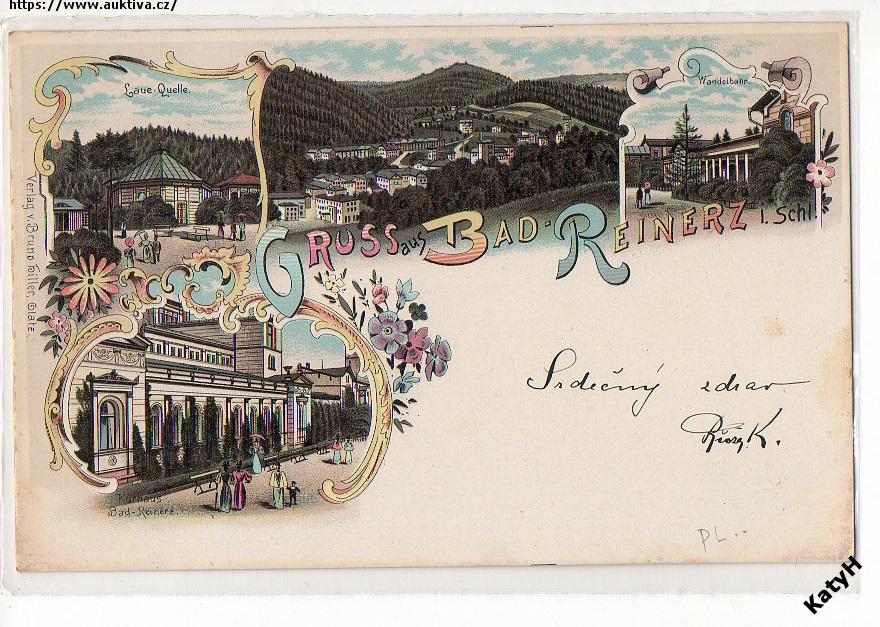 https://www.auktiva.cz/
Laue-Quelle.
Wandelbahn.
GRUSS aus BAD-REINERZ i. Schl.
Verlag v. Bruno Hiller, Glatz.
Srdečný zdrav
K.
Kurhaus
Bad-Reinerz.
PL..
KatyH